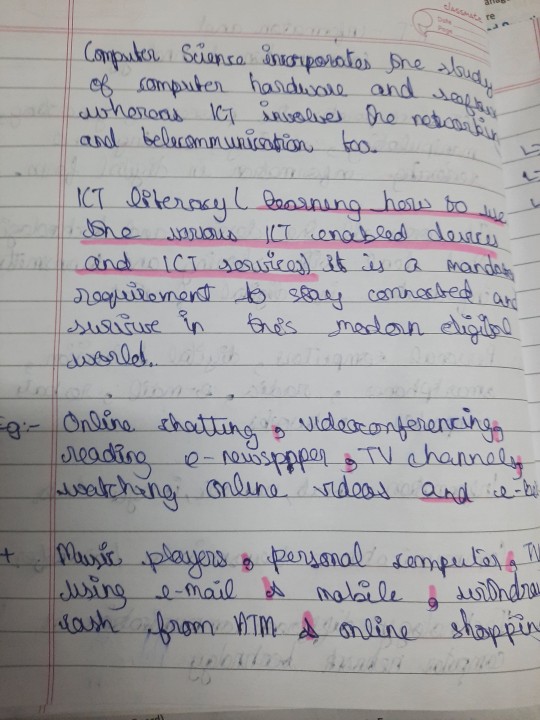 classmate
Date
Page
re
Computer Science incorporates the study
of computer hardware and softw
whereas ICT involves the networkin
and telecommunication too.
ICT literacy ( learning how to use
the various ICT enabled devices
and ICT services) it is a mandato
requirement to stay connected and
survive in this modern digital
world.
Eg:- Online chatting, videoconferencing,
reading e-newspppper, TV channels,
watching online videos and e-b
+ Music players, personal computer, TV
using e-mail & mobile, withdraw
cash from ATM & online shoppin